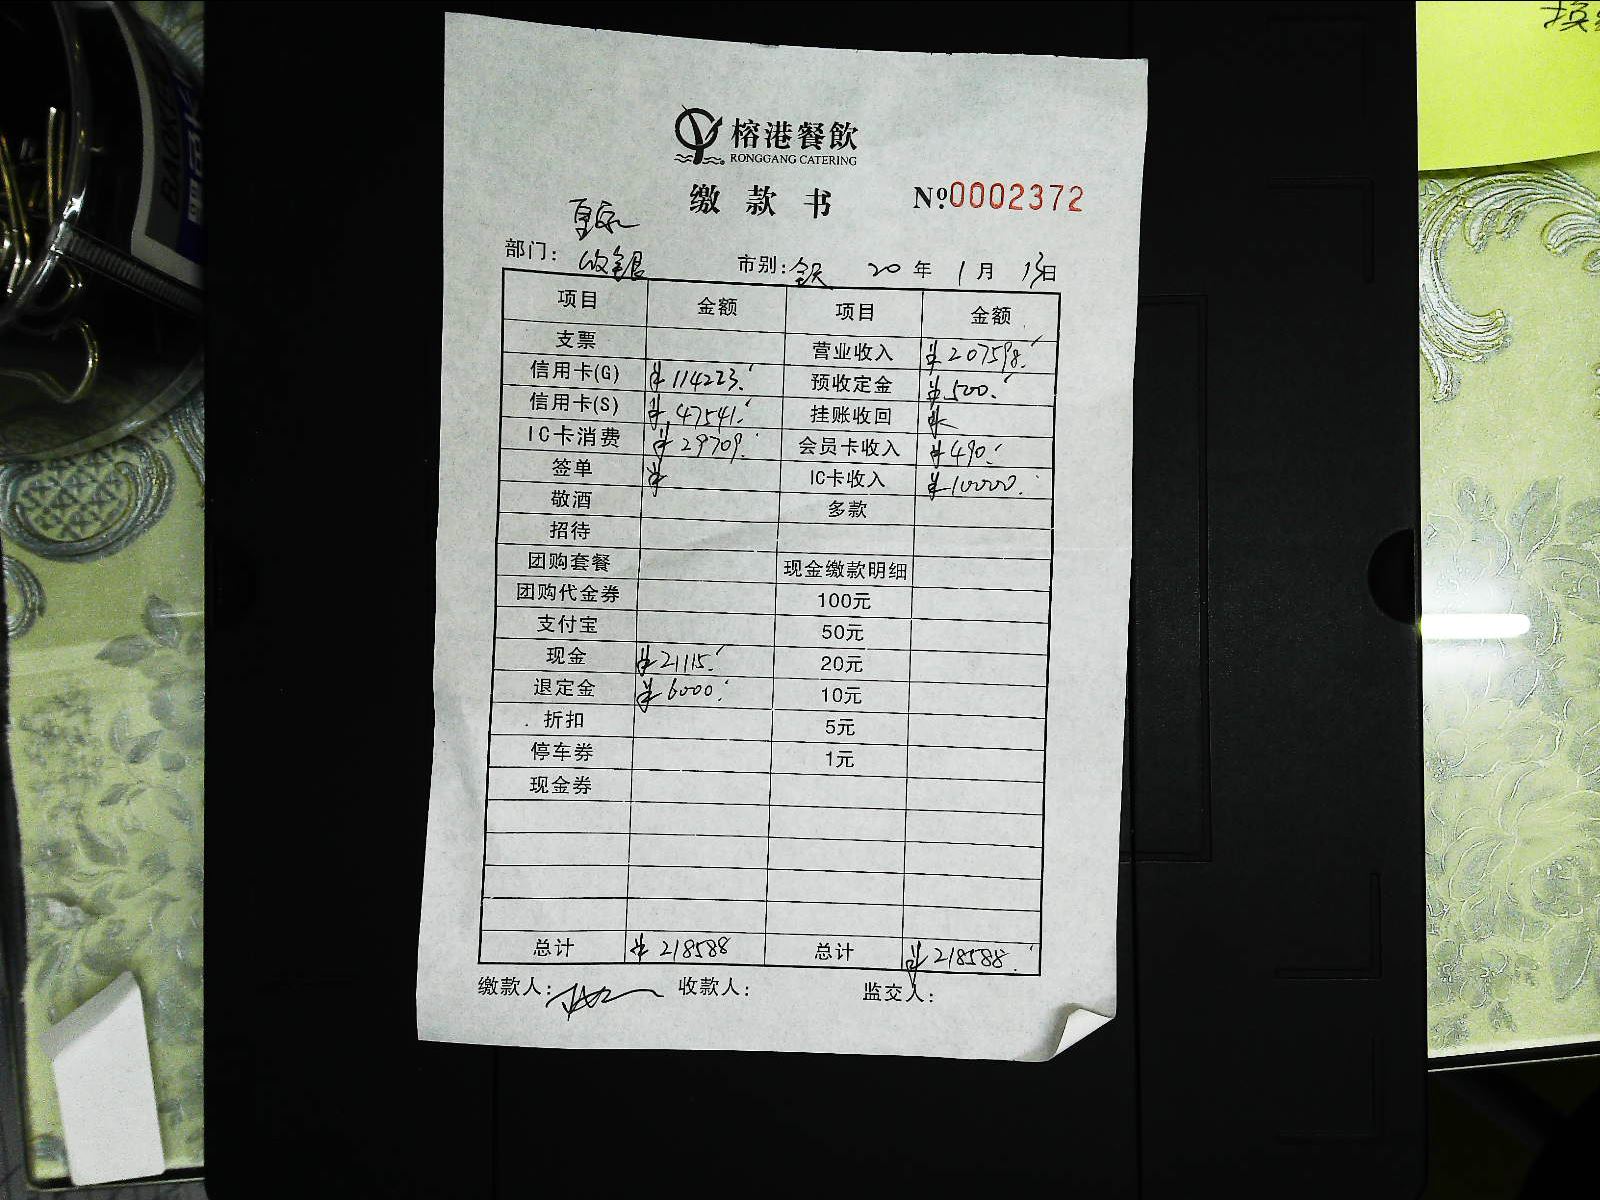 榕港餐飲
RONGGANG CATERING
缴款书 №0002372
部门: 收银 市别: 全天 20年1月13日
项目 金额 项目 金额
支票 营业收入 ¥207598.
信用卡(G) ¥114223. 预收定金 ¥500.
信用卡(S) ¥47541. 挂账收回 ¥
IC卡消费 ¥29709. 会员卡收入 ¥490.
签单 ¥ IC卡收入 ¥10000.
敬酒 多款
招待
团购套餐 现金缴款明细
团购代金券 100元
支付宝 50元
现金 ¥21115. 20元
退定金 ¥6000. 10元
折扣 5元
停车券 1元
现金券
总计 ¥218588 总计 ¥218588.
缴款人: 收款人: 监交人: